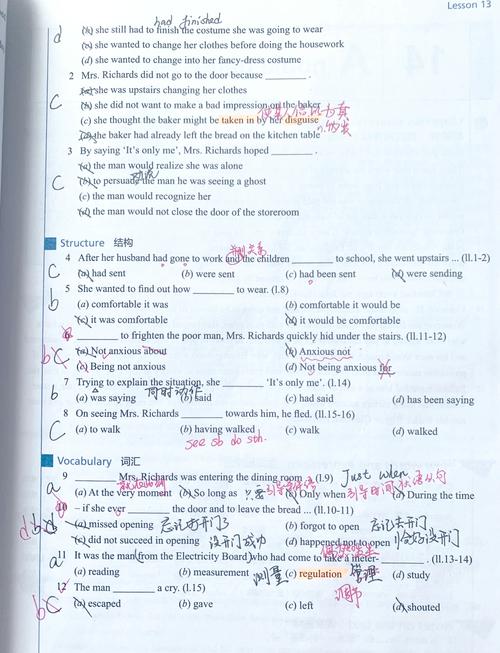 Lesson 13
had finished
d (a) she still had to finish the costume she was going to wear
(b) she wanted to change her clothes before doing the housework
(d) she wanted to change into her fancy-dress costume
2 Mrs. Richards did not go to the door because ________ .
(a) she was upstairs changing her clothes
C (b) she did not want to make a bad impression on the baker
(c) she thought the baker might be taken in by her disguise
(d) the baker had already left the bread on the kitchen table
3 By saying 'It's only me', Mrs. Richards hoped ________ .
(a) the man would realize she was alone
C (b) to persuade the man he was seeing a ghost
(c) the man would recognize her
(d) the man would not close the door of the storeroom
Structure 结构
4 After her husband had gone to work and the children ________ to school, she went upstairs ... (ll.1-2)
C (a) had sent (b) were sent (c) had been sent (d) were sending
5 She wanted to find out how ________ to wear. (l.8)
b (a) comfortable it was (b) comfortable it would be
(c) it was comfortable (d) it would be comfortable
6 ________ to frighten the poor man, Mrs. Richards quickly hid under the stairs. (ll.11-12)
b C (a) Not anxious about (b) Anxious not
(c) Being not anxious (d) Not being anxious for
7 Trying to explain the situation, she ________ 'It's only me'. (l.14)
同时动作
b (a) was saying (b) said (c) had said (d) has been saying
8 On seeing Mrs. Richards ________ towards him, he fled. (ll.15-16)
C (a) to walk (b) having walked (c) walk (d) walked
see sb do sth.
Vocabulary 词汇
9 ________ Mrs. Richards was entering the dining room . (l.9) Just when
a (a) At the very moment (b) So long as (c) Only when (d) During the time
10 – if she ever ________ the door and to leave the bread ... (ll.10-11)
(a) missed opening 忘记打开门了 (b) forgot to open 忘记去开门
(c) did not succeed in opening 没开门成功 (d) happened not to open 恰好没开门
a 11 It was the man (from the Electricity Board) who had come to take a meter- ________ . (ll.13-14)
(a) reading (b) measurement 测量 (c) regulation 管理 (d) study
调节
12 The man ________ a cry. (l.15)
b C (a) escaped (b) gave (c) left (d) shouted